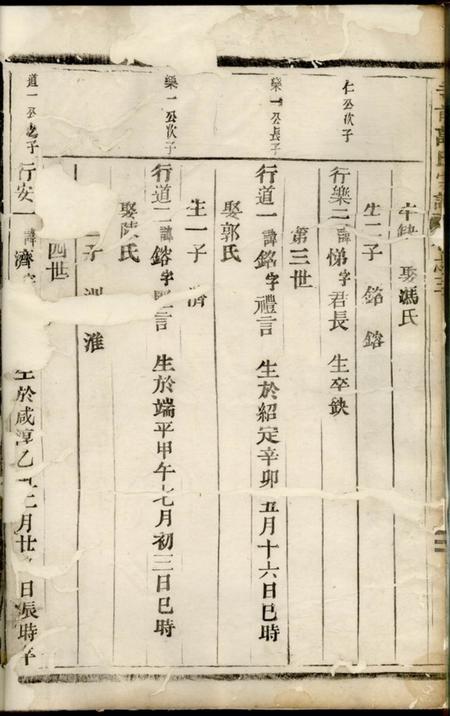 卒缺 娶馮氏
生二子 銘 鎔
仁公次子
行樂二諱悌字君長 生卒缺
第三世
樂一公長子
行道一諱銘字禮言 生於紹定辛卯五月十六日巳時
娶郭氏
生一子 濟
樂一公次子
行道二諱鎔字言 生於端平甲午七月初三日巳時
娶陳氏
二子 淮
四世
道一公之子
行安一諱濟字 生於咸淳乙丑二月廿日辰時卒